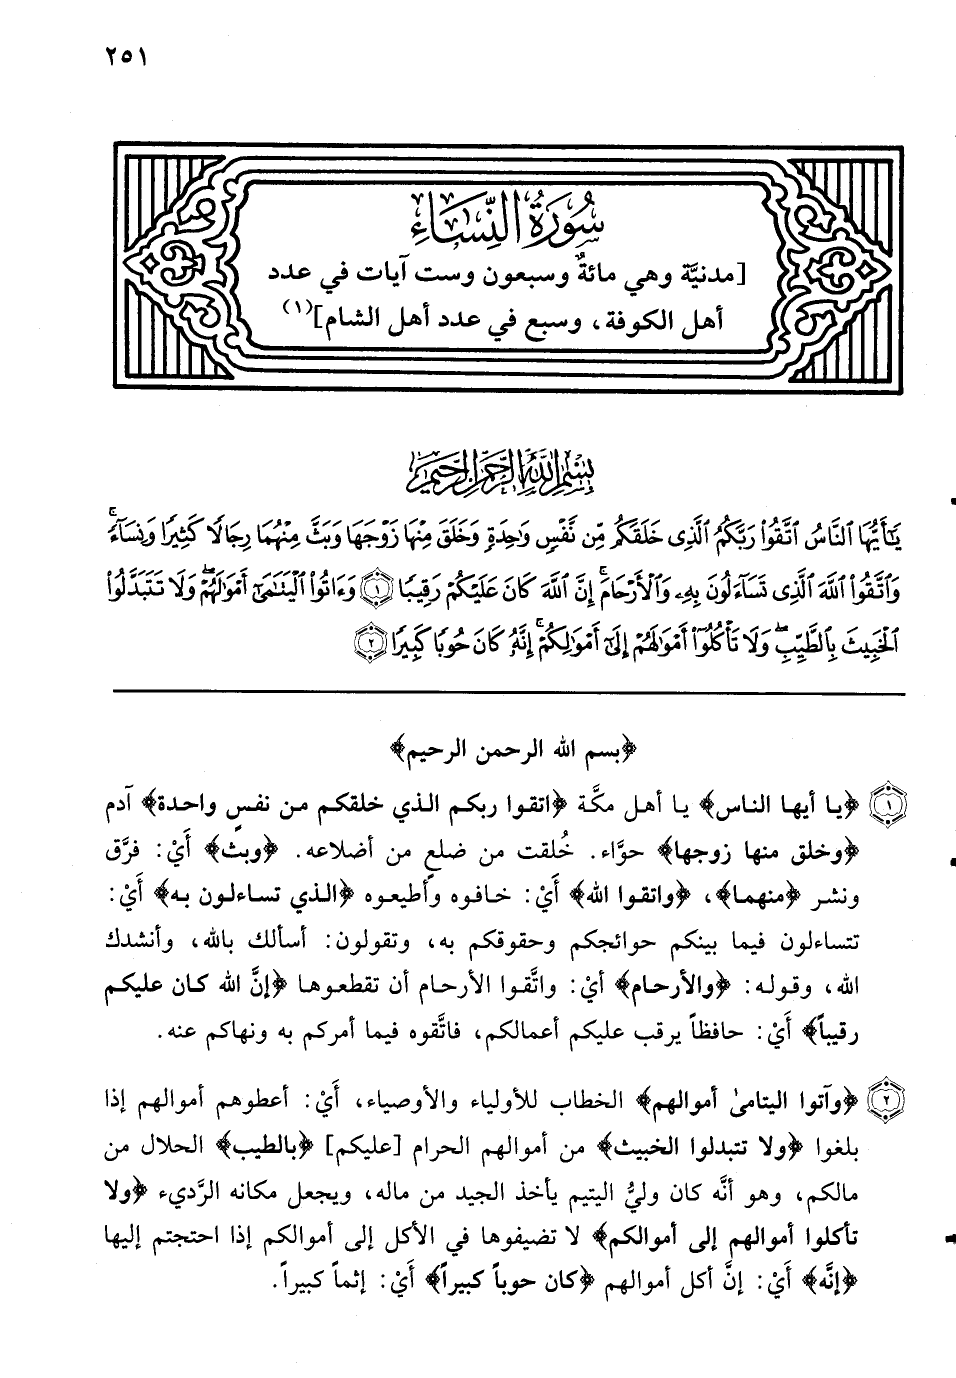 ٢٥١
سُورَةُ النِّسَاءِ
[مدنيَّة وهي مائةٌ وسبعون وست آيات في عدد
أهل الكوفة، وسبع في عدد أهل الشام](١)
بِسْمِ اللَّهِ الرَّحْمَٰنِ الرَّحِيمِ
يَٰٓأَيُّهَا ٱلنَّاسُ ٱتَّقُوا۟ رَبَّكُمُ ٱلَّذِى خَلَقَكُم مِّن نَّفْسٍ وَٰحِدَةٍ وَخَلَقَ مِنْهَا زَوْجَهَا وَبَثَّ مِنْهُمَا رِجَالًا كَثِيرًا وَنِسَآءً ۚ
وَٱتَّقُوا۟ ٱللَّهَ ٱلَّذِى تَسَآءَلُونَ بِهِۦ وَٱلْأَرْحَامَ ۚ إِنَّ ٱللَّهَ كَانَ عَلَيْكُمْ رَقِيبًا ١ وَءَاتُوا۟ ٱلْيَتَٰمَىٰٓ أَمْوَٰلَهُمْ ۖ وَلَا تَتَبَدَّلُوا۟
ٱلْخَبِيثَ بِٱلطَّيِّبِ ۖ وَلَا تَأْكُلُوٓا۟ أَمْوَٰلَهُمْ إِلَىٰٓ أَمْوَٰلِكُمْ ۚ إِنَّهُۥ كَانَ حُوبًا كَبِيرًا ٢
﴿بسم الله الرحمن الرحيم﴾
١ ﴿يا أيها الناس﴾ يا أهل مكَّة ﴿اتقوا ربكم الذي خلقكم من نفسٍ واحدة﴾ آدم
﴿وخلق منها زوجها﴾ حوَّاء. خُلقت من ضلعٍ من أضلاعه. ﴿وبث﴾ أَيْ: فرَّق
ونشر ﴿منهما﴾، ﴿واتقوا الله﴾ أَيْ: خافوه وأطيعوه ﴿الذي تساءلون به﴾ أَيْ:
تتساءلون فيما بينكم حوائجكم وحقوقكم به، وتقولون: أسألك بالله، وأنشدك
الله، وقوله: ﴿والأرحام﴾ أيْ: واتَّقوا الأرحام أن تقطعوها ﴿إنَّ الله كان عليكم
رقيباً﴾ أَيْ: حافظاً يرقب عليكم أعمالكم، فاتَّقوه فيما أمركم به ونهاكم عنه.
٢ ﴿وآتوا اليتامىٰ أموالهم﴾ الخطاب للأولياء والأوصياء، أَيْ: أعطوهم أموالهم إذا
بلغوا ﴿ولا تتبدلوا الخبيث﴾ من أموالهم الحرام [عليكم] ﴿بالطيب﴾ الحلال من
مالكم، وهو أنَّه كان وليُّ اليتيم يأخذ الجيد من ماله، ويجعل مكانه الرَّديء ﴿ولا
تأكلوا أموالهم إلى أموالكم﴾ لا تضيفوها في الأكل إلى أموالكم إذا احتجتم إليها
﴿إنَّه﴾ أَيْ: إنَّ أكل أموالهم ﴿كان حوباً كبيراً﴾ أَيْ: إثماً كبيراً.